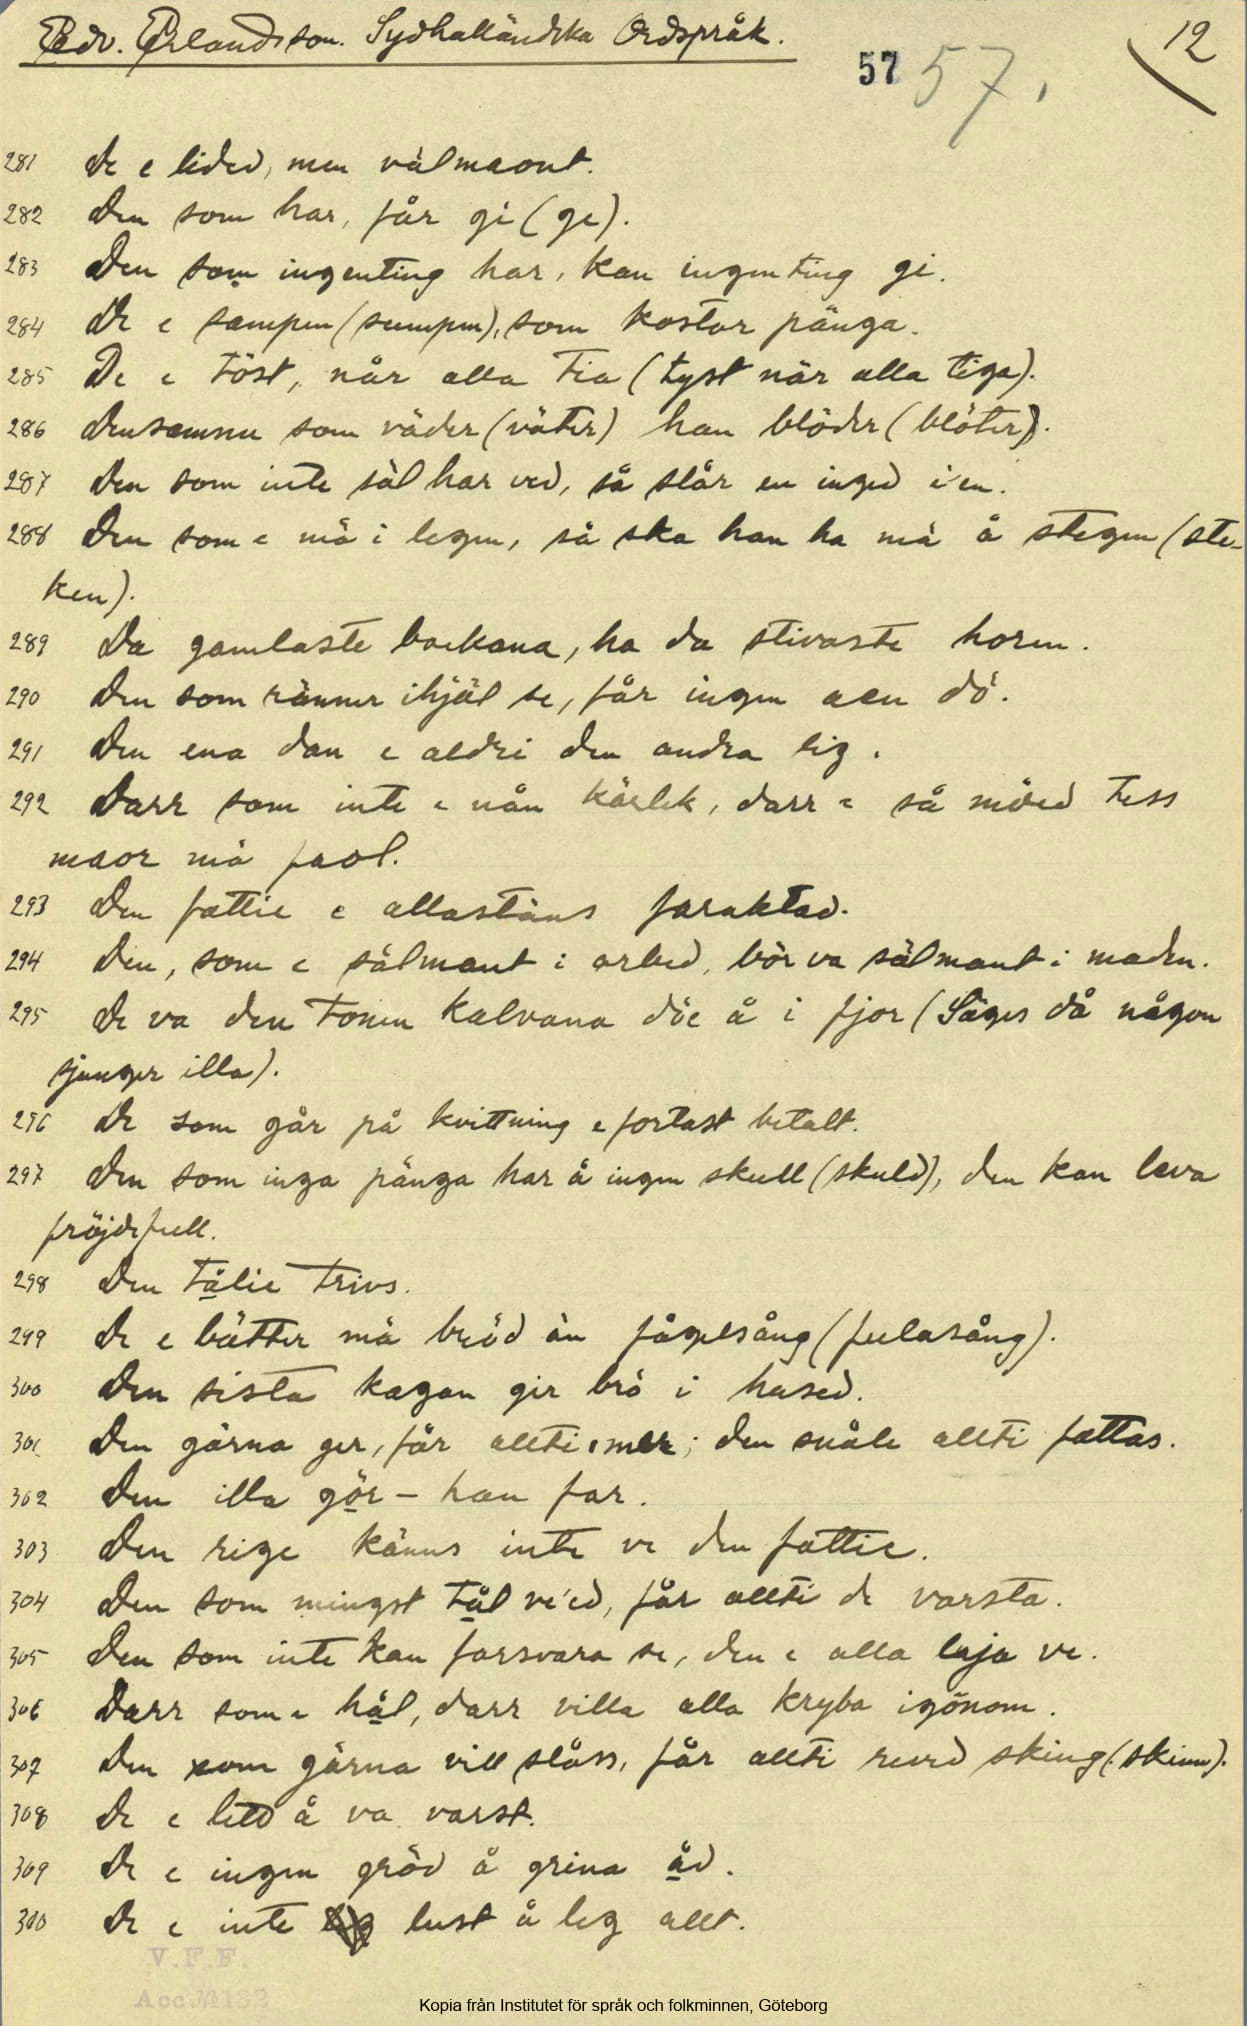 Edv. Erlandsson. Sydhalländska Ordspråk.
12
57 57.
281 De e lided, men välmaont.
282 Den som har, får gi (ge).
283 Den som ingenting har, kan ingenting gi.
284 De e sampen (sumpen), som kostar pänga.
285 De e töst, når alla tia (tyst när alla tiga).
286 Densamme som väder (väter) han blöder (blöter).
287 Den som inte säl har ved, så slår en inged i'en.
288 Den som e mä i legen, så ska han ha mä å stegen (ste-
ken).
289 Da gamlaste bockana, ha da stivaste horen.
290 Den som ränner ihjäl se, får ingen aen dö.
291 Den ena dan e aldri den andra lig.
292 Darr som inte e nån kärlek, darr e så möed tess
maor mä faol.
293 Den fattie e allastäns faraktad.
294 Den, som e sälmant i arbed, bör va sälmant i maden.
295 De va den tonen kalvana döe å i fjor (Säges då någon
sjunger illa).
296 De som går på kvittning e fortast betalt.
297 Den som inga pänga har å ingen skull (skuld), den kan leva
fröjdefull.
298 Den tålie trivs.
299 De e bätter mä bröd än fågelsång (fulasång).
300 Den sista kagan gir brö i hused.
301 Den gärna ger, får allti mer; den snåle allti fattas.
302 Den illa gör – han far.
303 Den rige känns inte ve den fattie.
304 Den som mingst tål ve'ed, får allti de varsta.
305 Den som inte kan farsvara se, den e alla laja ve.
306 Darr som e hål, darr villa alla kryba igönom.
307 Den som gärna vill slåss, får allti reved sking (skinn).
308 De e letd å va varst.
309 De e ingen gröd å grina åd.
300 De e inte lust å leg allt.
V.F.F.
Kopia från Institutet för språk och folkminnen, Göteborg